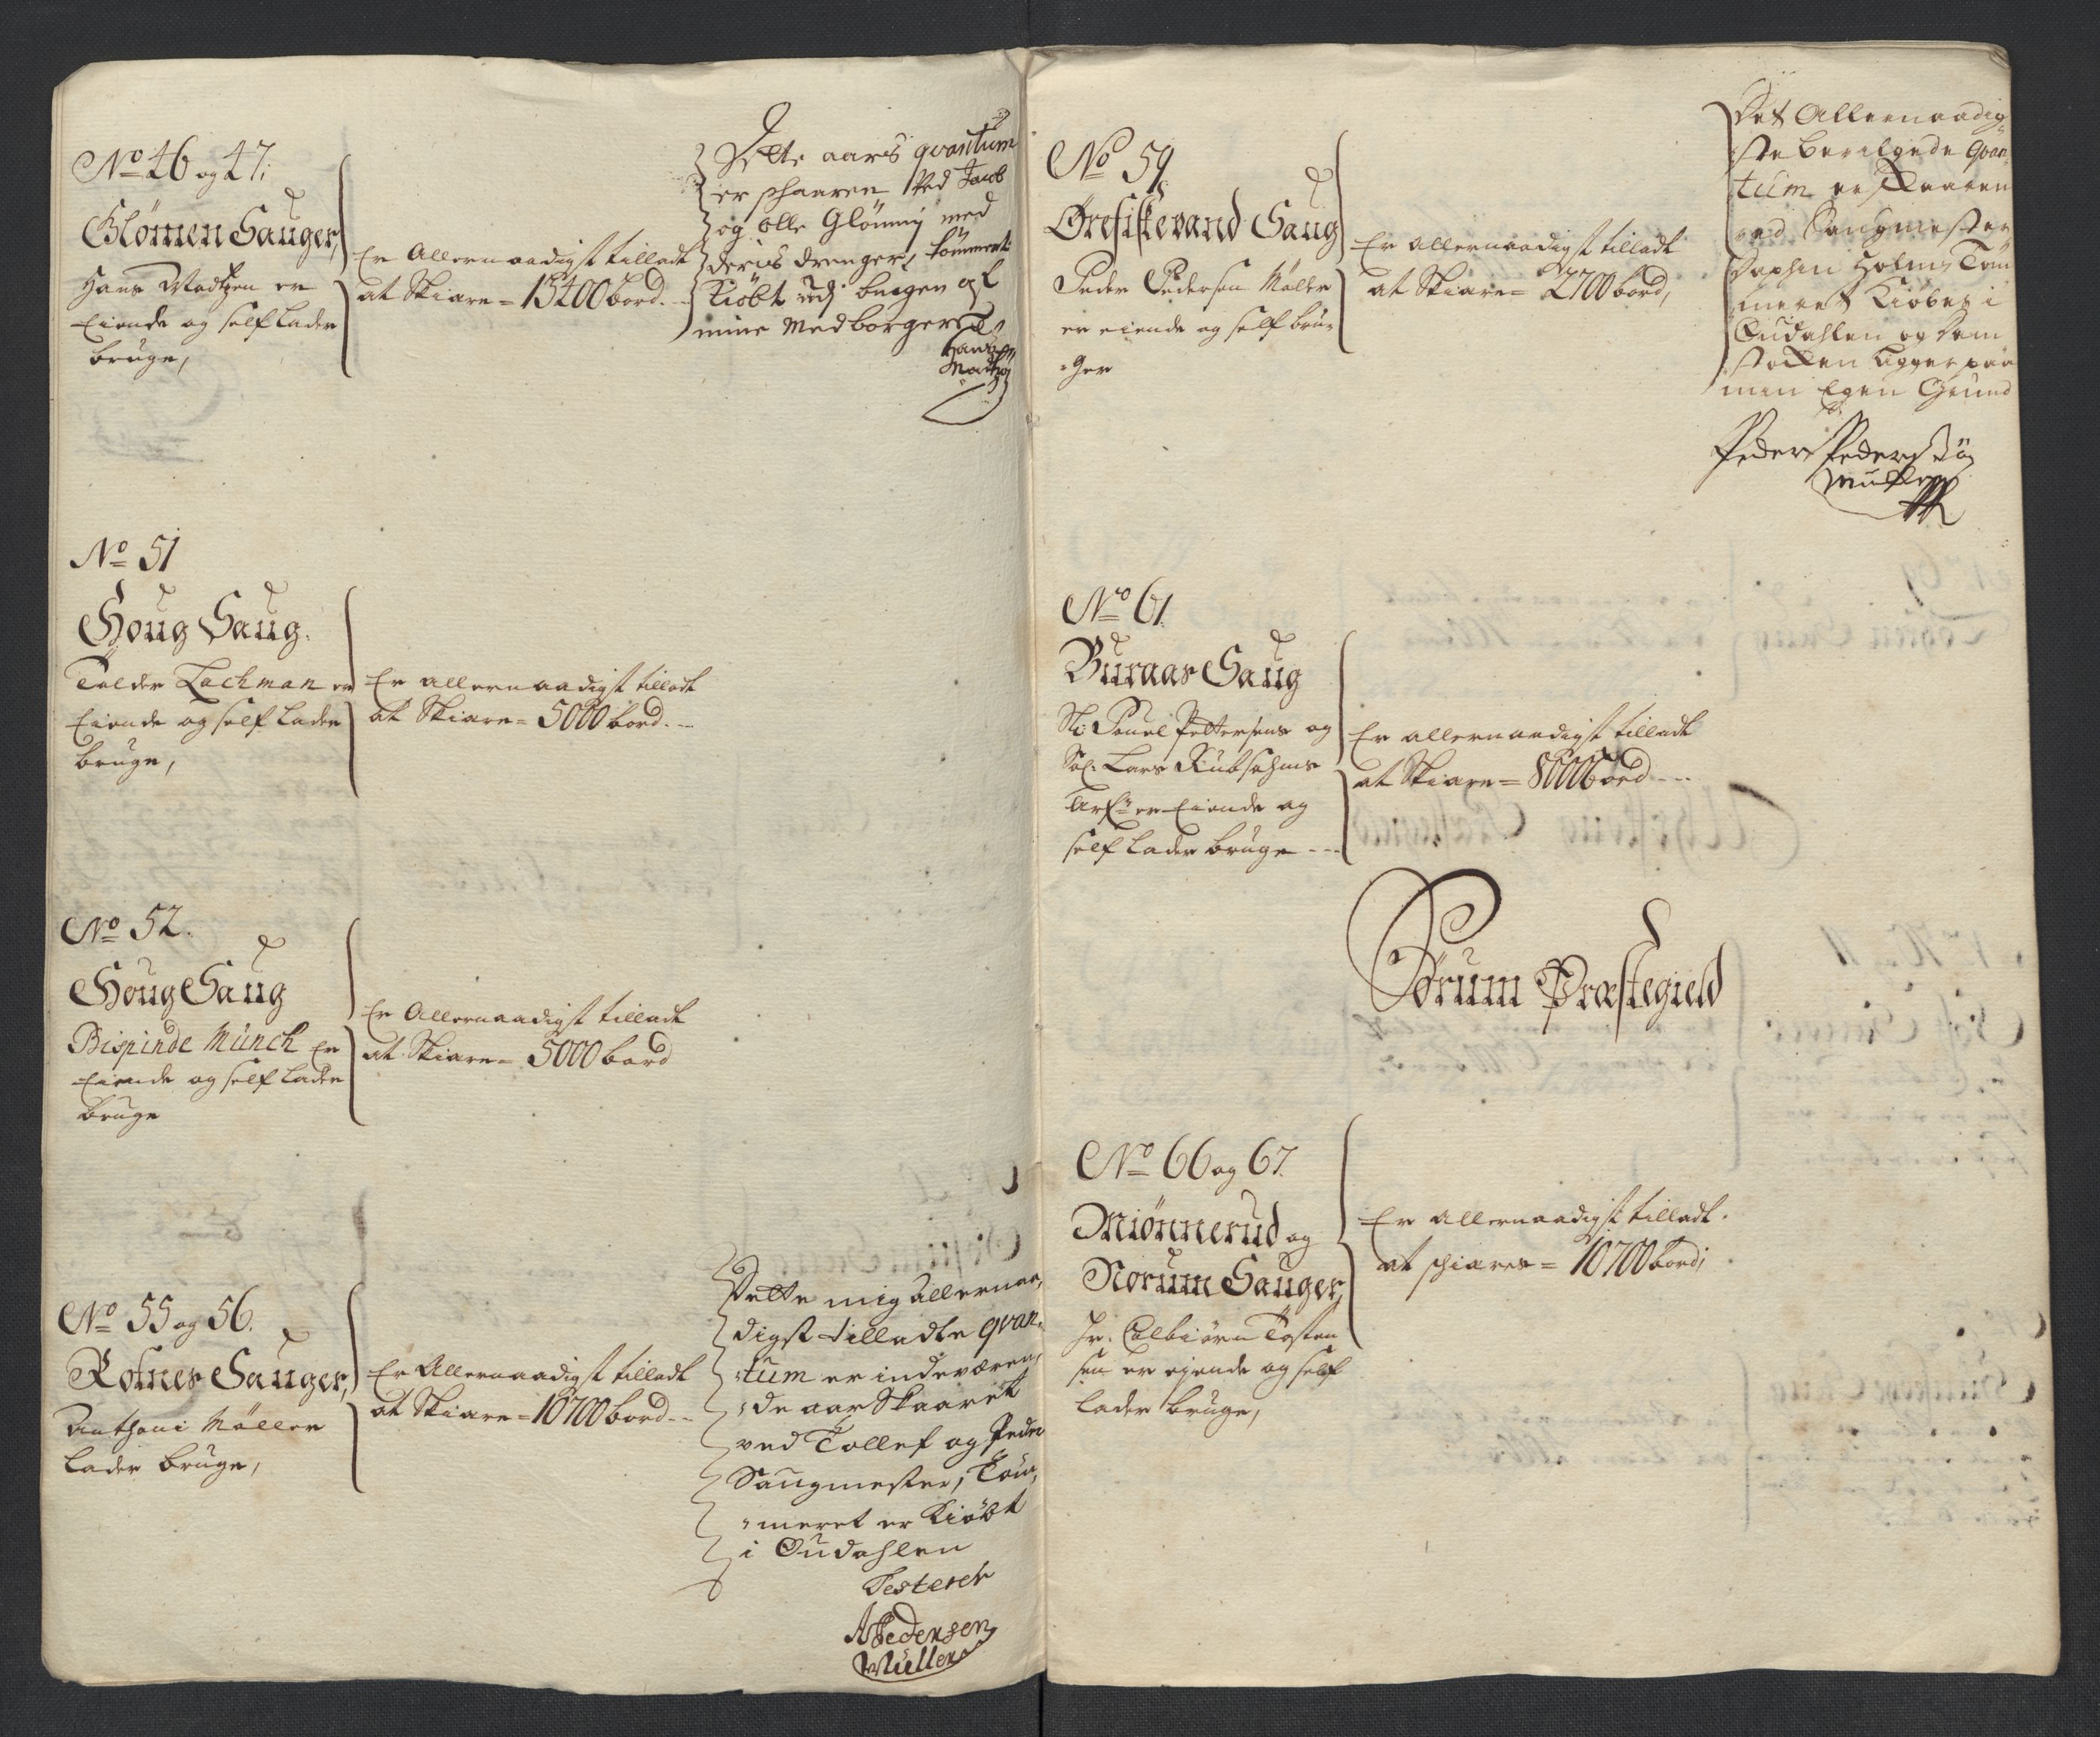 No 46 og 47:
Glömen Sauger,
Hans Madtzen er
Eiende og self lader
bruge,
Er Allernaadigst tilladt
at Skiære = 15400 bord.
Dette aars qvantum
er schaaren Ved Jacob
og olle Glömmi med
deris drenger, tömmert
Kiöbt udj bergen af
mine Medborgere
Hans
Madtzen
No 51
Houg Saug.
Tolder Lachman er
Eiende og self lader
bruge,
Er allernaadigst tilladt
at Skiære = 5000 bord.
No 52.
Houg Saug
Bispinde Münch Er
Eiende og self lader
bruge
Er Allernaadigst tilladt
at Skiære = 5000 bord
No 55 og 56.
Rotner Sauger,
Anthoni Møller
lader bruge,
Er Allernaadigst tilladt
at Skiære = 10700 bord
Dette mig allernaa,
digst tilladte qvan,
tum er indeværen,
de aar Skaaret
ved Tollef og Peder
Saugmester, Töm,
meret er Kiöbt
i Oudahlen
Testerer
APedersen
Müller
No 59
Ørefiskevand Saug
Peder Pedersen Møller
er eiende og self bru,
ger
Er allernaadigst tilladt
at Skiære = 2700 bord,
Det Allernaadig
ste bevilgede Qvan
tum er skaaren
ved Saugmester
Holm, Töm
meret Kiöbes i
Oudahlen og Dem
stocken ligger paa
min Egen Grund
Peder Pederssön
Müller
No 61.
Buraas Saug
Sl: Pouel Pettersens og
Sal. Lars Rubsahms
Arf: er Eiende og
self lader bruge
Er allernaadigst tilladt
at Skiære = 8000 bord
Sørum Præstegield
No 66 og 67.
Miönnerud og
Norum Sauger,
Hr. Colbiörn Tosten
sen er eiende og self
lader bruge,
Er allernaadigst tilladt.
at schiæres = 10700 bord,